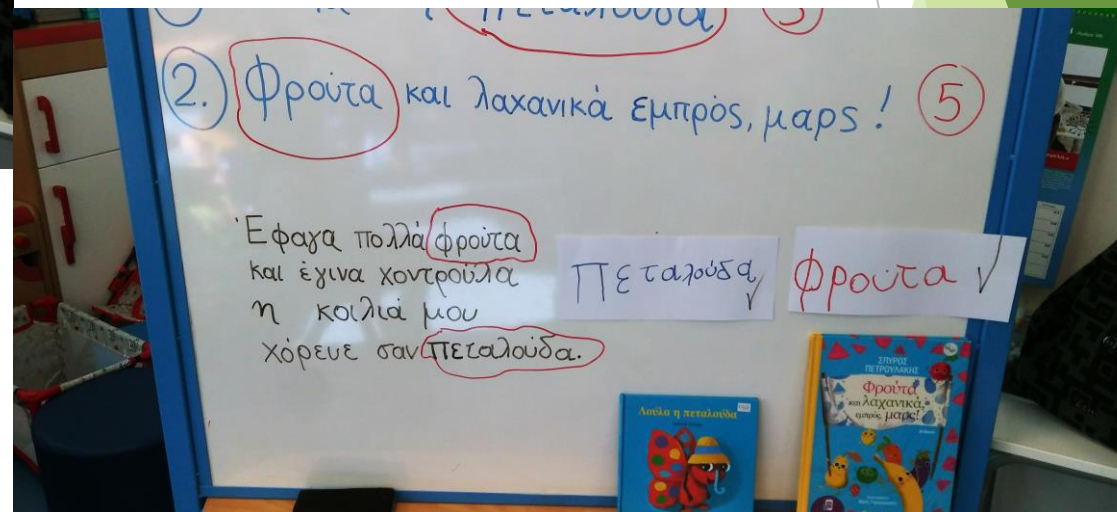 πεταλούδα 3
2. Φρούτα και λαχανικά εμπρός, μαρς! 5
Έφαγα πολλά φρούτα
και έγινα χοντρούλα
η κοιλιά μου
χόρευε σαν πεταλούδα.
Πεταλούδα
Φρούτα
Λούλα η πεταλούδα
ΣΠΥΡΟΣ
ΠΕΤΡΟΥΛΑΚΗΣ
Φρούτα
και λαχανικά,
εμπρός, μαρς!